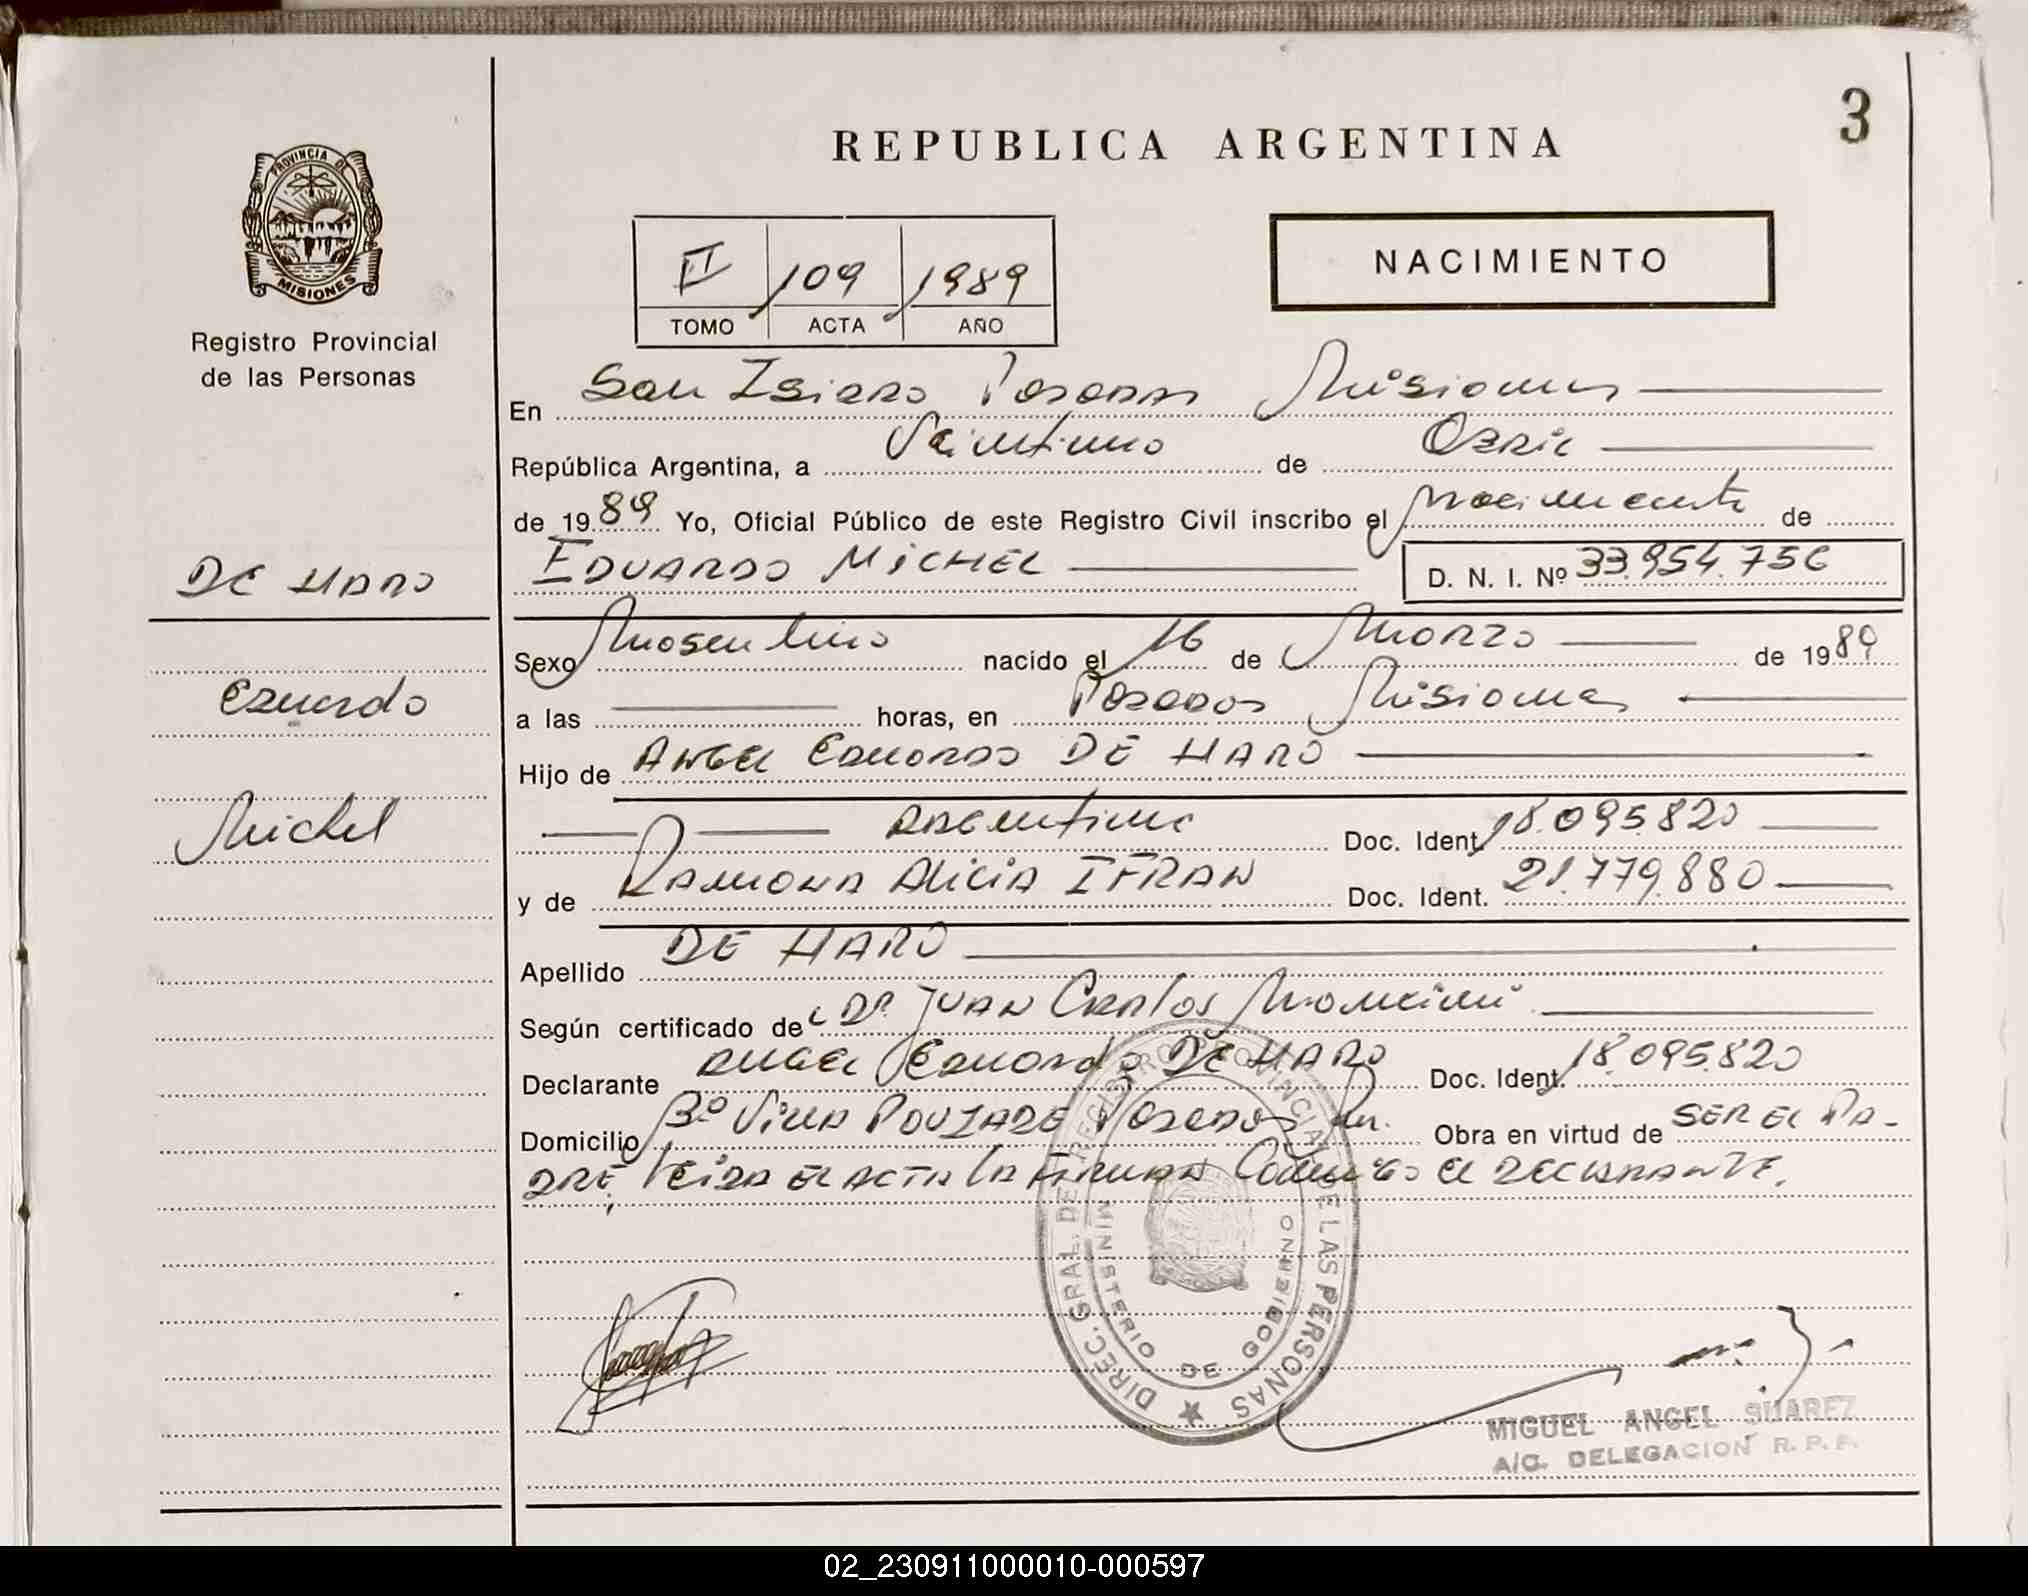 3
REPUBLICA ARGENTINA
PROVINCIA DE
MISIONES
Registro Provincial
de las Personas
II 109 1989
TOMO ACTA AÑO
NACIMIENTO
En San Isidro Posadas Misiones
República Argentina, a Veintiuno de Abril
de 1989 Yo, Oficial Público de este Registro Civil inscribo el nacimiento de
DE HARO
EDUARDO MICHEL D. N. I. Nº 33.954.756
Sexo Masculino nacido el 16 de Marzo de 1989
Eduardo
a las horas, en Posadas Misiones
Hijo de Angel Eduardo DE HARO
Michel
Argentina Doc. Ident. 18.095.820
y de Ramona Alicia IFRAN Doc. Ident. 21.779.880
Apellido DE HARO
Según certificado de Dr. Juan Carlos
Declarante Angel Eduardo DE HARO Doc. Ident. 18.095.820
Domicilio Bº Villa Posadas Obra en virtud de SER EL PA-
DRE, Leida el acta la firman conmigo el declarante.
DIREC. GRAL. DE REGISTRO PROVINCIAL DE LAS PERSONAS
MINISTERIO DE GOBIERNO
MIGUEL ANGEL SUAREZ
A/C. DELEGACION R. P. P.
02_230911000010-000597